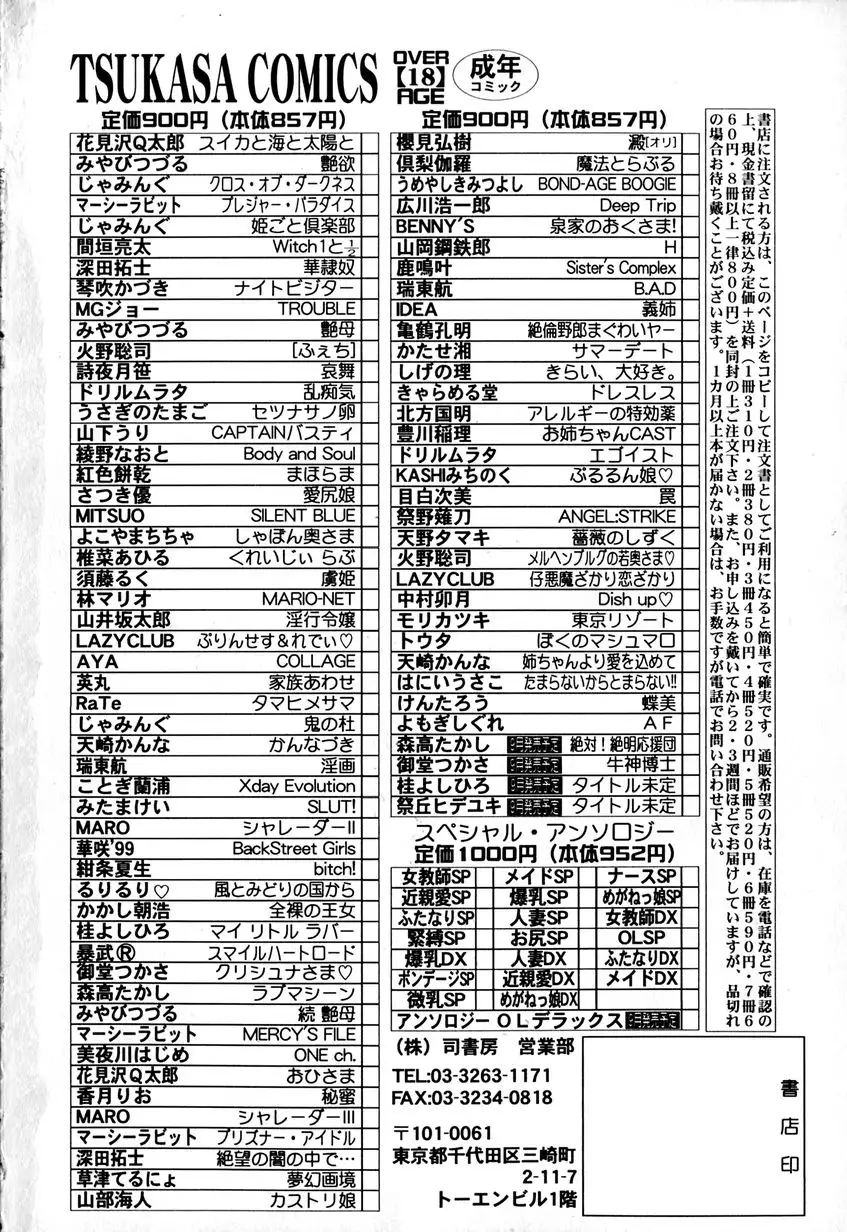 TSUKASA COMICS
OVER
【18】
AGE
成年
コミック
定価900円（本体857円）
花見沢Q太郎 スイカと海と太陽と
みやびつづる 艶欲
じゃみんぐ クロス・オブ・ダークネス
マーシーラビット プレジャー・パラダイス
じゃみんぐ 姫ごと倶楽部
間垣亮太 Witch1と½
深田拓士 華隷奴
琴吹かづき ナイトビジター
MGジョー TROUBLE
みやびつづる 艶母
火野聡司 [ふぇち]
詩夜月笹 哀舞
ドリルムラタ 乱痴気
うさぎのたまご セツナサノ卵
山下うり CAPTAINバスティ
綾野なおと Body and Soul
紅色餅乾 まほらま
さつき優 愛尻娘
MITSUO SILENT BLUE
よこやまちちゃ しゃぼん奥さま
椎菜あひる くれいじぃ らぶ
須藤るく 虜姫
林マリオ MARIO-NET
山井坂太郎 淫行令嬢
LAZYCLUB ぷりんせす＆れでぃ♡
AYA COLLAGE
英丸 家族あわせ
RaTe タマヒメサマ
じゃみんぐ 鬼の杜
天崎かんな かんなづき
瑞東航 淫画
ことぎ蘭浦 Xday Evolution
みたまけい SLUT!
MARO シャレーダーII
華咲'99 BackStreet Girls
紺条夏生 bitch!
るりるり♡ 風とみどりの国から
かかし朝浩 全裸の王女
桂よしひろ マイ リトル ラバー
暴武Ⓡ スマイルハートロード
御堂つかさ クリシュナさま♡
森高たかし ラブマシーン
みやびつづる 続 艶母
マーシーラビット MERCY'S FILE
美夜川はじめ ONE ch.
花見沢Q太郎 おひさま
香月りお 秘蜜
MARO シャレーダーIII
マーシーラビット プリズナー・アイドル
深田拓士 絶望の闇の中で…
草津てるにょ 夢幻画境
山部海人 カストリ娘
定価900円（本体857円）
櫻見弘樹 澱[オリ]
倶梨伽羅 魔法とらぶる
うめやしきみつよし BOND-AGE BOOGIE
広川浩一郎 Deep Trip
BENNY'S 泉家のおくさま!
山岡鋼鉄郎 H
鹿鳴叶 Sister's Complex
瑞東航 B.A.D
IDEA 義姉
亀鶴孔明 絶倫野郎まぐわいヤー
かたせ湘 サマーデート
しげの理 きらい、大好き。
きゃらめる堂 ドレスレス
北方国明 アレルギーの特効薬
豊川稲理 お姉ちゃんCAST
ドリルムラタ エゴイスト
KASHIみちのく ぷるるん娘♡
目白次美 罠
祭野薙刀 ANGEL:STRIKE
天野タマキ 薔薇のしずく
火野聡司 メルヘンブルグの若奥さま♡
LAZYCLUB 仔悪魔ざかり恋ざかり
中村卯月 Dish up♡
モリカツキ 東京リゾート
トウタ ぼくのマシュマロ
天崎かんな 姉ちゃんより愛を込めて
はにいうさこ たまらないからとまらない!!
けんたろう 蝶美
よもぎしぐれ A F
森高たかし 絶対！絶明応援団
御堂つかさ 牛神博士
桂よしひろ タイトル未定
祭丘ヒデユキ タイトル未定
スペシャル・アンソロジー
定価1000円（本体952円）
女教師SP メイドSP ナースSP
近親愛SP 爆乳SP めがねっ娘SP
ふたなりSP 人妻SP 女教師DX
緊縛SP お尻SP OLSP
爆乳DX 人妻DX ふたなりDX
ボンデージSP 近親愛DX メイドDX
微乳SP めがねっ娘DX
アンソロジー OLデラックス
（株）司書房 営業部
TEL:03-3263-1171
FAX:03-3234-0818
〒101-0061
東京都千代田区三崎町
2-11-7
トーエンビル1階
書店印
書店に注文される方は、このページをコピーして注文書としてご利用になると簡単で確実です。通販希望の方は、在庫を電話などで確認の
上、現金書留にて税込み定価＋送料（1冊310円・2冊380円・3冊450円・4冊520円・5冊520円・6冊590円・7冊6
60円・8冊以上一律800円）を同封の上ご注文下さい。また、お申し込みを戴いてから2・3週間ほどでお届けしていますが、品切れ
の場合お待ち戴くことがございます。1カ月以上本が届かない場合は、お手数ですが電話でお問い合わせ下さい。